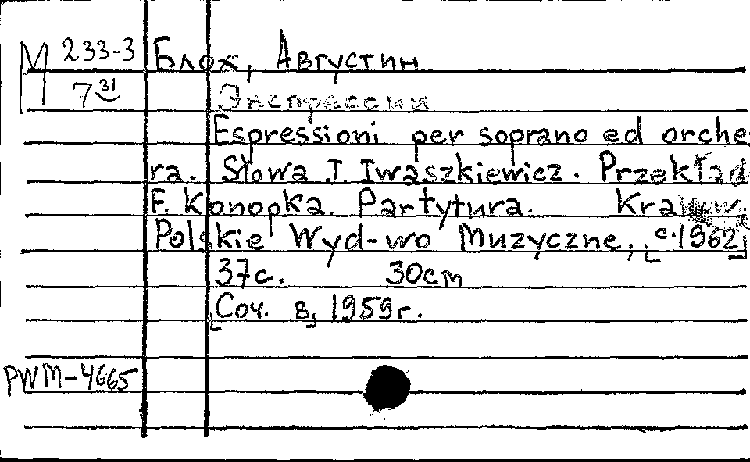 М 233-3 Блох, Августин
7 31
Экспрессии
Espressioni per soprano ed orche
ra. Słowa J. Iwaszkiewicz. Przekład
F. Konopka. Partytura.
Polskie Wyd-wo Muzyczne, [c.1962]
37с. 30cm
[Соч. в] 1959г.
PWM-4665